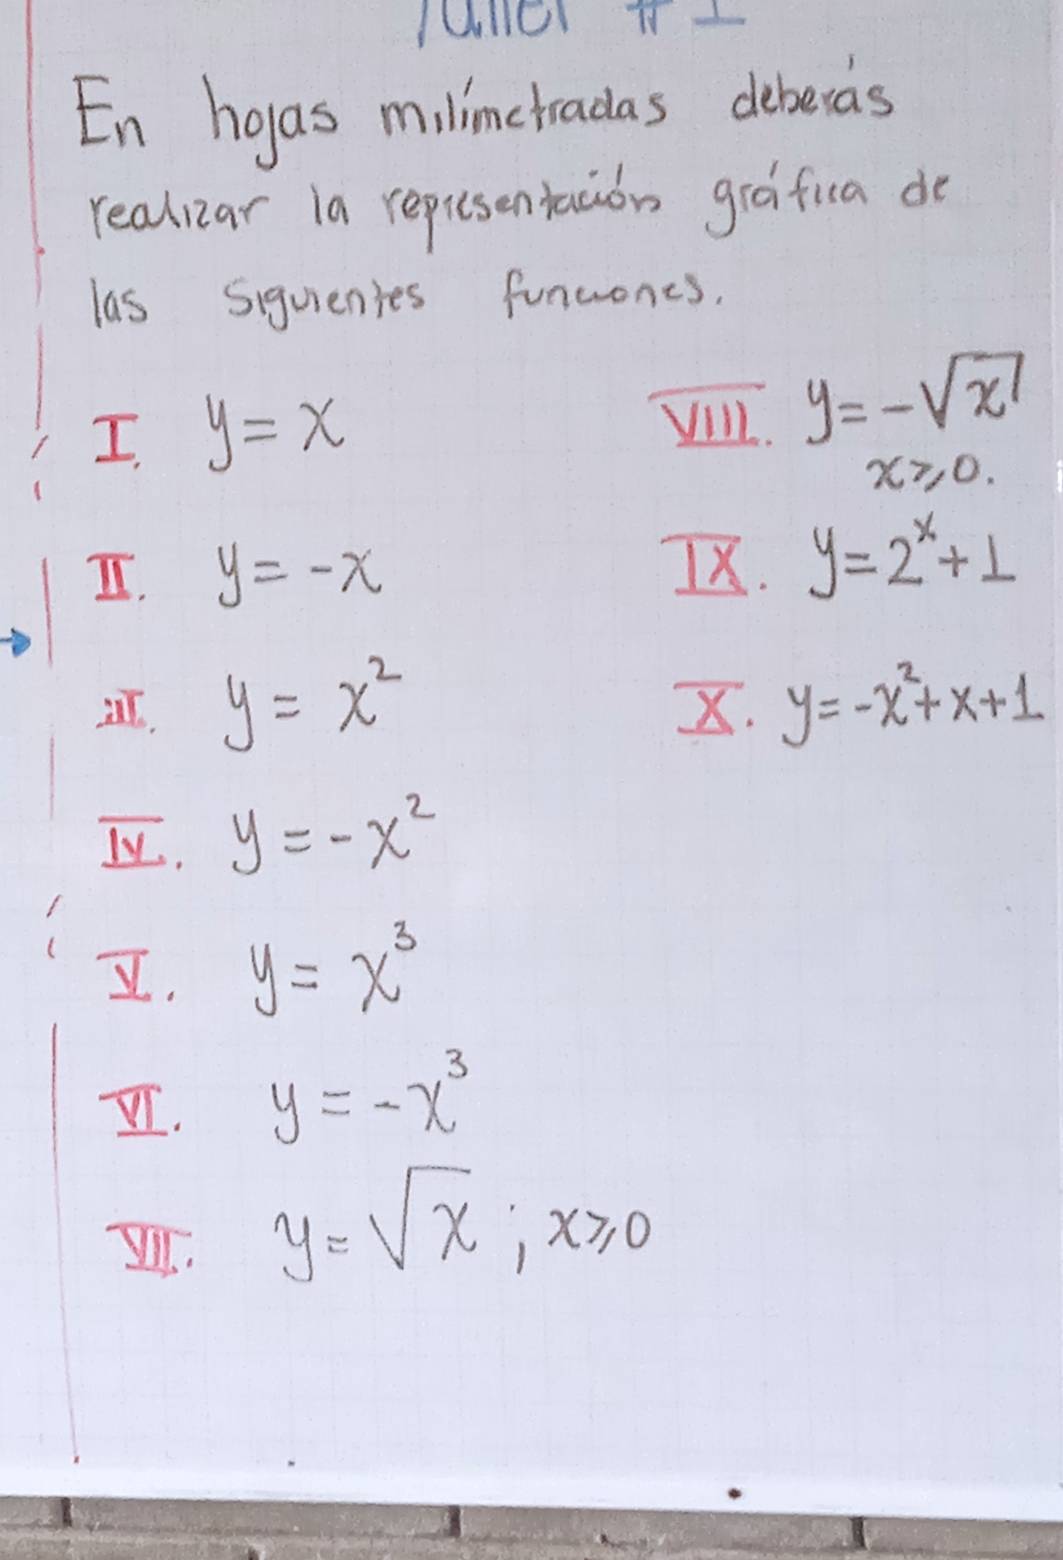 Taller # 1
En hojas milímetradas deberás
realizar la representación gráfica de
las siguientes funciones.
I. y = x
II. y = -x
III. y = x²
IV. y = -x²
V. y = x³
VI. y = -x³
VII. y = √x ; x ≥ 0
VIII. y = -√x
x ≥ 0.
IX. y = 2ˣ + 1
X. y = -x² + x + 1